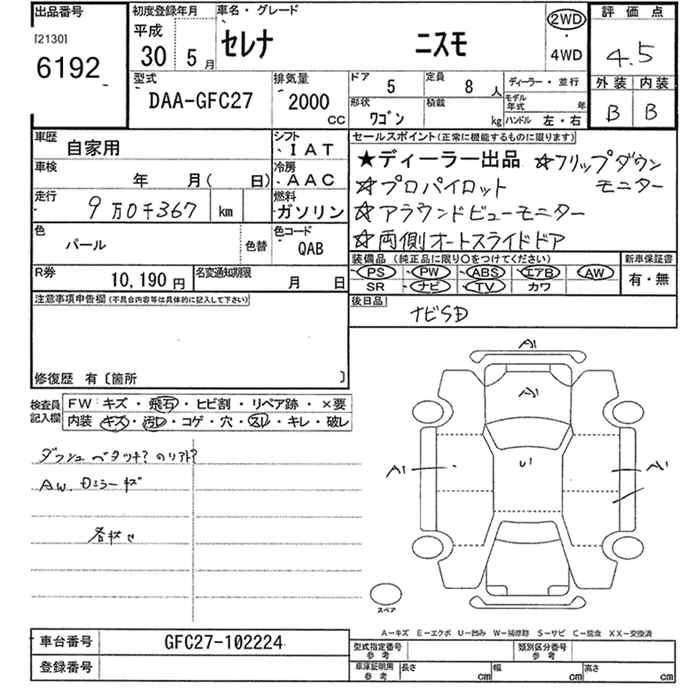 出品番号 初度登録年月 車名・グレード 評価点
[2130] 平成 セレナ ニスモ 2WD
6192 30 5月 ・ 4.5
4WD
型式 排気量 ドア 定員 ディーラー・並行 外装 内装
DAA-GFC27 2000 5 8人 モデル年式 年 B B
cc 形状 ワゴン 積載 kg ハンドル 左・右
車歴 自家用 シフト IAT セールスポイント(正常に機能するものに限ります)
車検 年 月( 日) 冷房 AAC ★ディーラー出品 ☆フリップダウン
☆プロパイロット モニター
走行 9万0千367 km 燃料 ガソリン ☆アラウンドビューモニター
色 パール 色替 色コード QAB ☆両側オートスライドドア
装備品(純正品に限り○をつけてください) 新車保証書
R券 10,190円 名変通知期限 月 日 PS PW ABS エアB AW 有・無
SR ナビ TV カワ
注意事項申告欄(不具合内容等は具体的に記入して下さい) 後日品
ナビSD
修復歴 有〔箇所 〕
検査員記入欄 FW キズ・飛石・ヒビ割・リペア跡・×要
内装 キズ・汚レ・コゲ・穴・スレ・キレ・破レ
A1
A1
A1 U1 A1
AW
スペア
A-キズ E-エクボ U-凹み W-補修跡 S-サビ C-腐食 XX-交換済
車台番号 GFC27-102224 型式指定番号 参考 類別区分番号 参考
登録番号 車庫証明用 参考 長さ cm 幅 cm 高さ cm